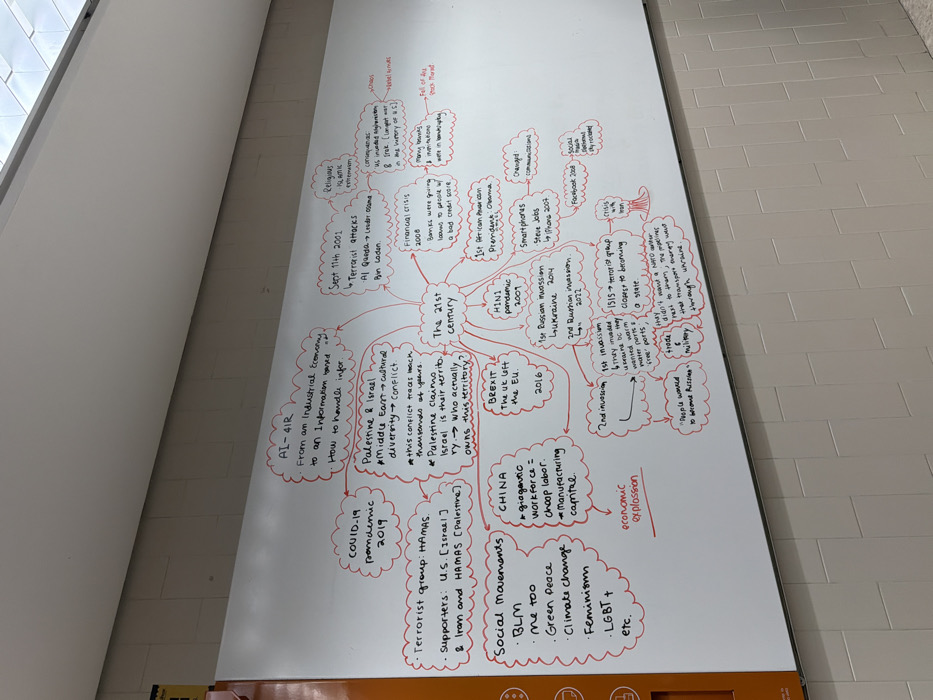 The 21st
century
Sept 11th 2001
↳ Terrorist attacks
Al Quaeda → Leader osama
Bin Laden.
Religious
ISLAMIC
extremism
consequences
& Irak
Financial crisis
2008
Banks were giving
loans to people w/
a bad credit score
many banks
& institutions
were in bankruptcy
Fall of the
stock market
1st African American
President: Obama
Smartphones
Steve Jobs
↳ iPhone 2007
changed
communications
Facebook 2004
Social
media
H1N1
pandemic
2009
1st Russian invasion
↳ Ukraine 2014
2nd Russian invasion
↳ 2022
ISIS → terrorist group
closest to becoming
a state.
crisis
with
Iran
1st invasion
↳ they invaded
ukraine bc they
wanted warm
water ports &
free ports,
they didn't want a NATO center
next to them, the pipelines
that transport energy went
through ukraine
trade
&
military
2nd invasion
"People wanted
to become Russian"
BREXIT
The UK left
the EU.
2016
CHINA
* gigantic
workforce =
cheap labor.
* Manufacturing
capital.
economic
explossion
Social movements
· BLM
· Me too
· Green peace
· Climate change
· Feminism
· LGBT+
etc.
Palestine & Israel
* Middle East → cultural
diversity → conflict
* this conflict traces back
thousands of years.
* Palestine claims
Israel is their territo
ry. → who actually
owns this territory?
· Terrorist group: HAMAS.
· Supporters: U.S [Israel]
& Iran and HAMAS [Palestine]
COVID-19
pandemic
2019
AI - 4IR
· From an Industrial Economy
to an Information based
· How to handle infor.